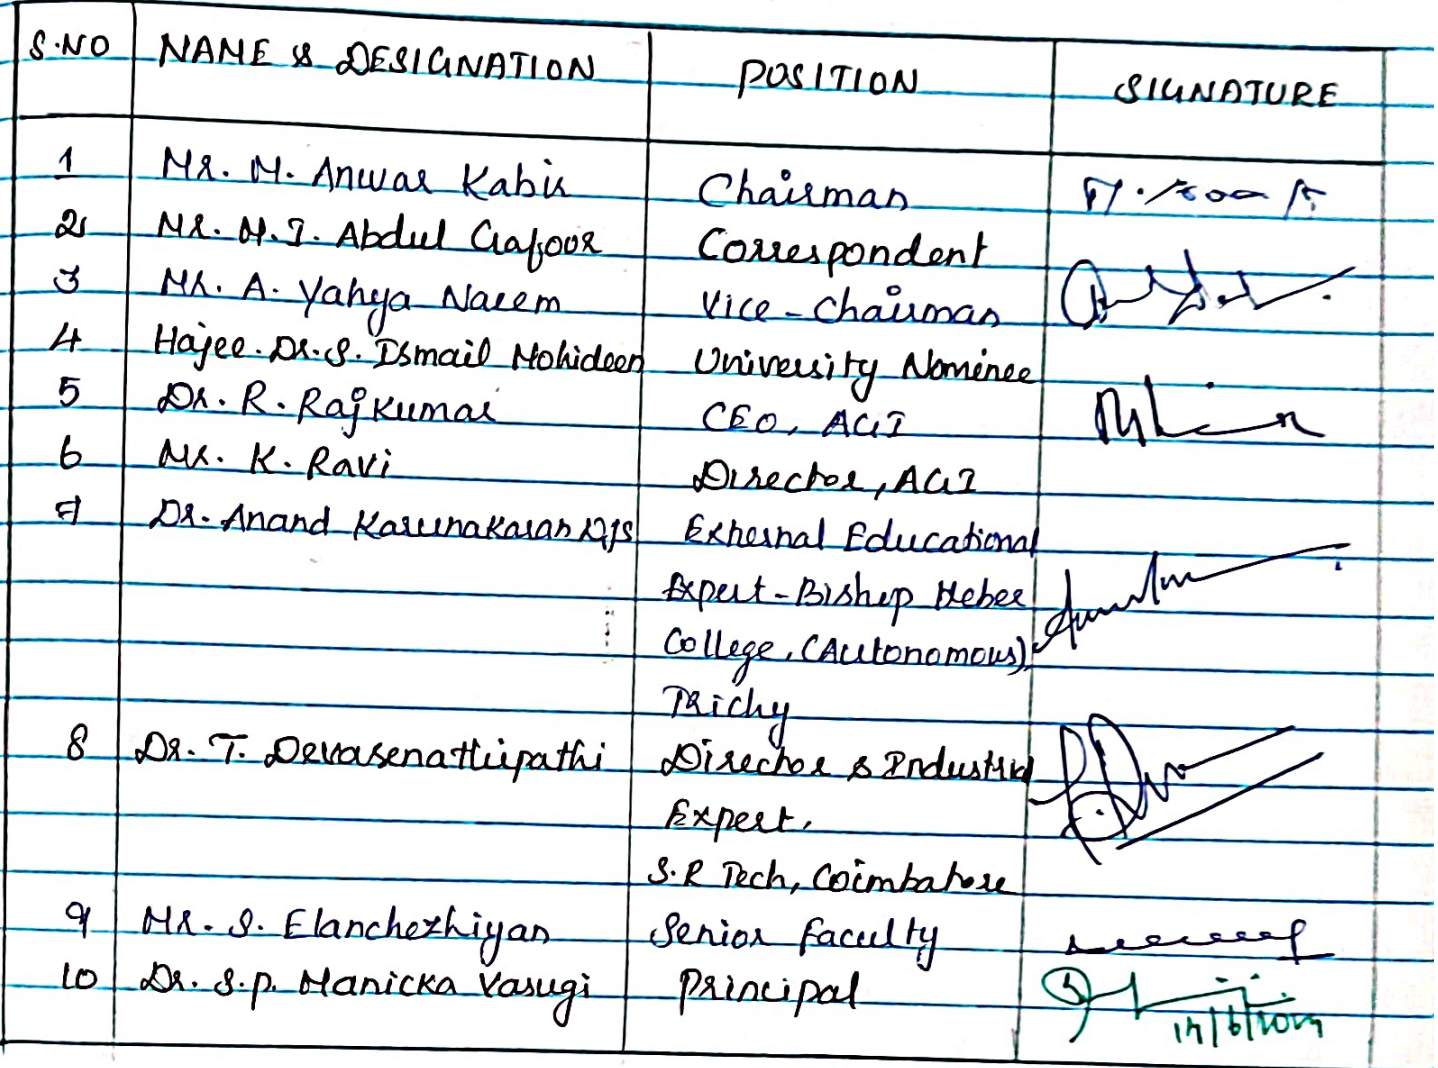 S.NO NAME & DESIGNATION POSITION SIGNATURE
1 Mr. M. Anwar Kabir Chairman
2 Mr. M.J. Abdul Gafoor Correspondent
3 Mr. A. Yahya Naeem Vice-Chairman
4 Hajee.Dr.S. Ismail Mohideen University Nominee
5 Dr. R. Rajkumar CEO, AGI
6 Mr. K. Ravi Director, AGI
7 Dr. Anand Karunakaran External Educational
Expert-Bishop Heber
College, (Autonomous)
Trichy
8 Dr. T. Devasenathipathi Director & Industrial
Expert,
S.R Tech, Coimbatore
9 Mr. S. Elanchezhiyan Senior Faculty
10 Dr. S.P. Manicka Vasugi Principal